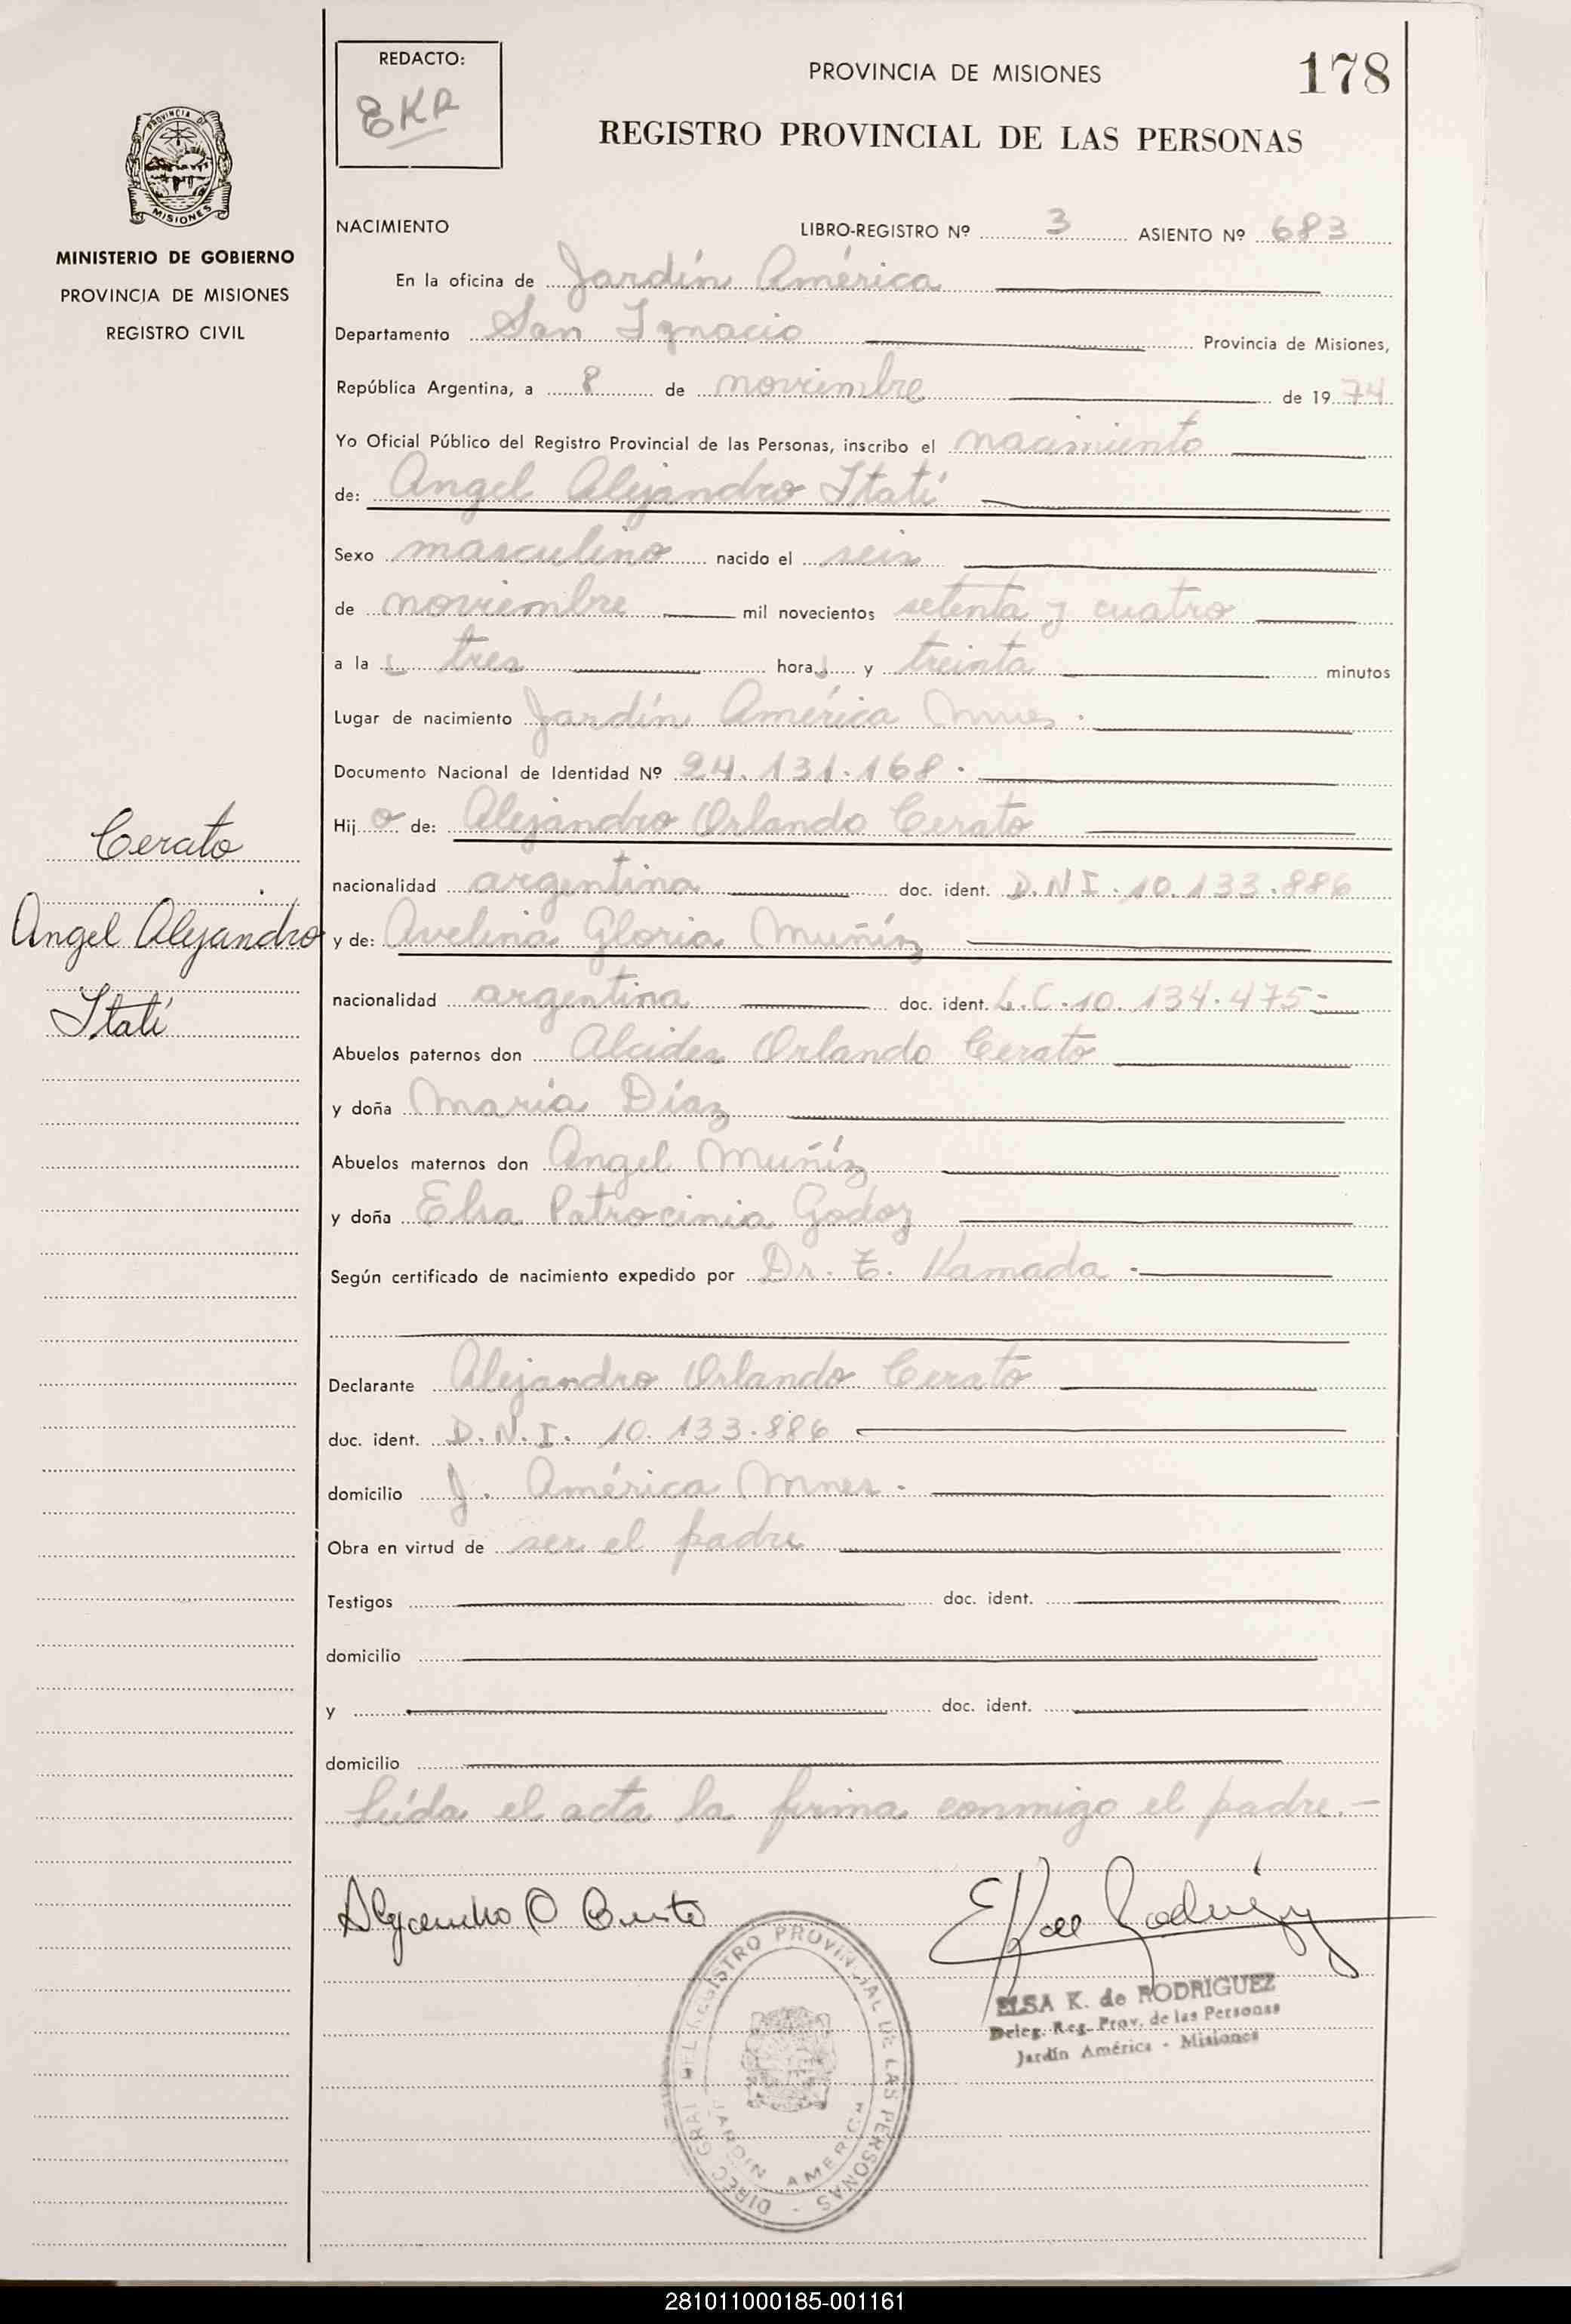 REDACTO:
EKR
PROVINCIA DE MISIONES
178
REGISTRO PROVINCIAL DE LAS PERSONAS
PROVINCIA DE
MISIONES
MINISTERIO DE GOBIERNO
PROVINCIA DE MISIONES
REGISTRO CIVIL
NACIMIENTO LIBRO-REGISTRO Nº 3 ASIENTO Nº 683
En la oficina de Jardín América
Departamento San Ignacio Provincia de Misiones,
República Argentina, a 8 de noviembre de 1974
Yo Oficial Público del Registro Provincial de las Personas, inscribo el nacimiento
de: Angel Alejandro Itatí
Sexo masculino nacido el seis
de noviembre mil novecientos setenta y cuatro
a la s tres hora s y treinta minutos
Lugar de nacimiento Jardín América Mnes.
Documento Nacional de Identidad Nº 24.131.168.
Hij o de: Alejandro Orlando Cerato
nacionalidad argentina doc. ident. D.N.I. 10.133.886
y de: Avelina Gloria Muñíz
nacionalidad argentina doc. ident. L.C. 10.134.475-
Abuelos paternos don Alcides Orlando Cerato
y doña María Díaz
Abuelos maternos don Angel Muñíz
y doña Elsa Patrocinia Godoy
Según certificado de nacimiento expedido por Dr. T. Kamada.
Declarante Alejandro Orlando Cerato
doc. ident. D.N.I. 10.133.886
domicilio J. América Mnes.
Obra en virtud de ser el padre
Testigos doc. ident.
domicilio
y doc. ident.
domicilio
leída el acta la firma conmigo el padre.-
Cerato
Angel Alejandro
Itatí
Alejandro O Cerato
Elsa Rodríguez
ELSA K. de RODRIGUEZ
Deleg. Reg. Prov. de las Personas
Jardín América - Misiones
DIREC. GRAL. DEL REGISTRO PROVINCIAL DE LAS PERSONAS -
JARDIN AMERICA
281011000185-001161